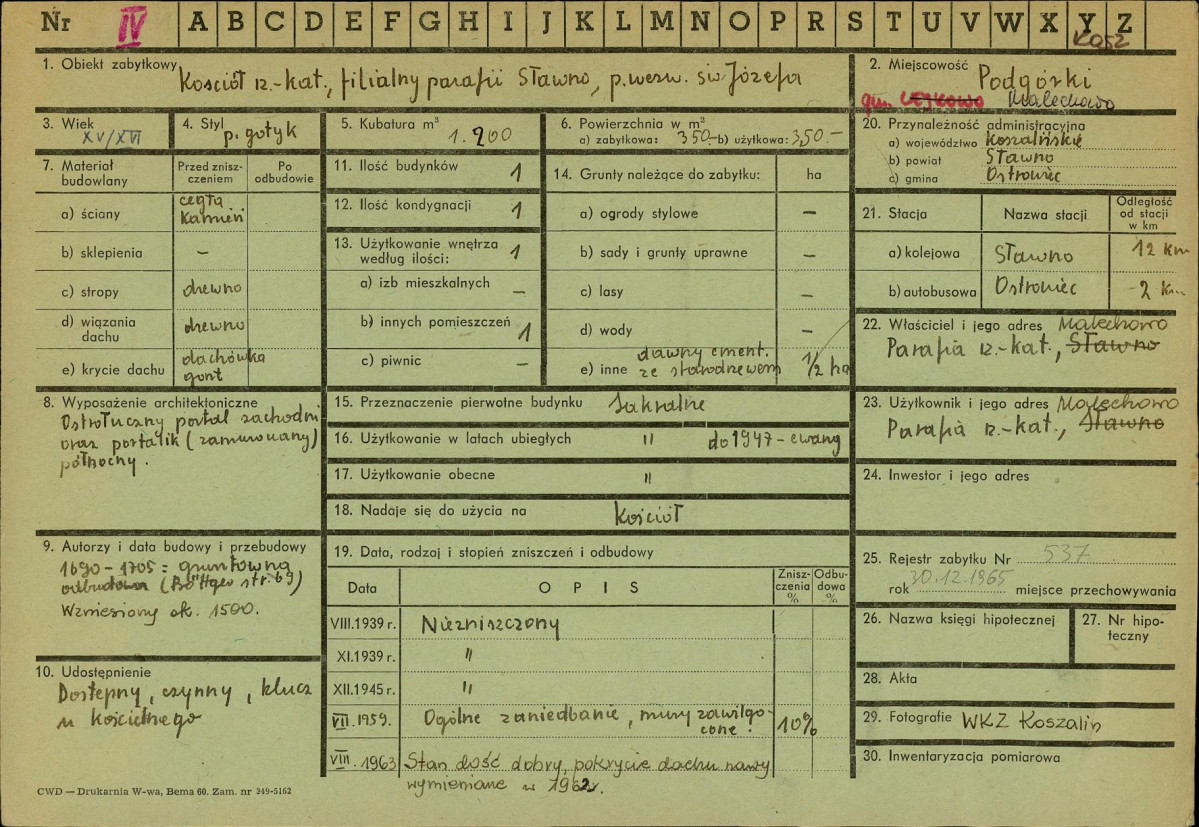 Nr IV A B C D E F G H I J K L M N O P R S T U V W X Y Z
Kosz
1. Obiekt zabytkowy Kościół rz.-kat., filialny parafii Sławno, p.wezw. św. Józefa
2. Miejscowość Podgórki
gm. Malechowo
3. Wiek XV/XVI
4. Styl p. gotyk
5. Kubatura m³ 1.200
6. Powierzchnia w m²
a) zabytkowa: 350.- b) użytkowa: 350.-
20. Przynależność administracyjna
a) województwo Koszalińskie
b) powiat Sławno
c) gmina Ostrowiec
7. Materiał budowlany
Przed zniszczeniem
Po odbudowie
a) ściany cegła kamień
b) sklepienia –
c) stropy drewno
d) wiązania dachu drewno
e) krycie dachu dachówka gont
11. Ilość budynków 1
12. Ilość kondygnacji 1
13. Użytkowanie wnętrza według ilości: 1
a) izb mieszkalnych –
b) innych pomieszczeń 1
c) piwnic –
14. Grunty należące do zabytku: ha
a) ogrody stylowe –
b) sady i grunty uprawne –
c) lasy –
d) wody –
e) inne dawny cment. ze starodrzewem 1/2 ha
21. Stacja Nazwa stacji Odległość od stacji w km
a) kolejowa Sławno 12 km
b) autobusowa Ostrowiec 2 km
22. Właściciel i jego adres Malechowo
Parafia rz.-kat., Sławno
8. Wyposażenie architektoniczne
Ostrołuczny portal zachodni
oraz portalik (zamurowany)
północny.
15. Przeznaczenie pierwotne budynku Sakralne
16. Użytkowanie w latach ubiegłych " do 1947 - ewang
17. Użytkowanie obecne "
18. Nadaje się do użycia na kościół
23. Użytkownik i jego adres Malechowo
Parafia rz.-kat., Sławno
24. Inwestor i jego adres
9. Autorzy i data budowy i przebudowy
1690 - 1705 = gruntowna
odbudowa (Böttger str. 69)
Wzniesiony ok. 1500.
10. Udostępnienie
Dostępny, czynny, klucz
u kościelnego
19. Data, rodzaj i stopień zniszczeń i odbudowy
Data OPIS Zniszczenia % Odbudowa %
VIII.1939 r. Niezniszczony
XI.1939 r. "
XII.1945 r. "
VII.1959. Ogólne zaniedbanie, mury zawilgocone. 10%
VIII.1963 Stan dość dobry, pokrycie dachu nawy
wymienione w 1962r.
25. Rejestr zabytku Nr 537
rok 30.12.1965 miejsce przechowywania
26. Nazwa księgi hipotecznej
27. Nr hipoteczny
28. Akta
29. Fotografie WKZ Koszalin
30. Inwentaryzacja pomiarowa
CWD — Drukarnia W-wa, Bema 60. Zam. nr 249-5162